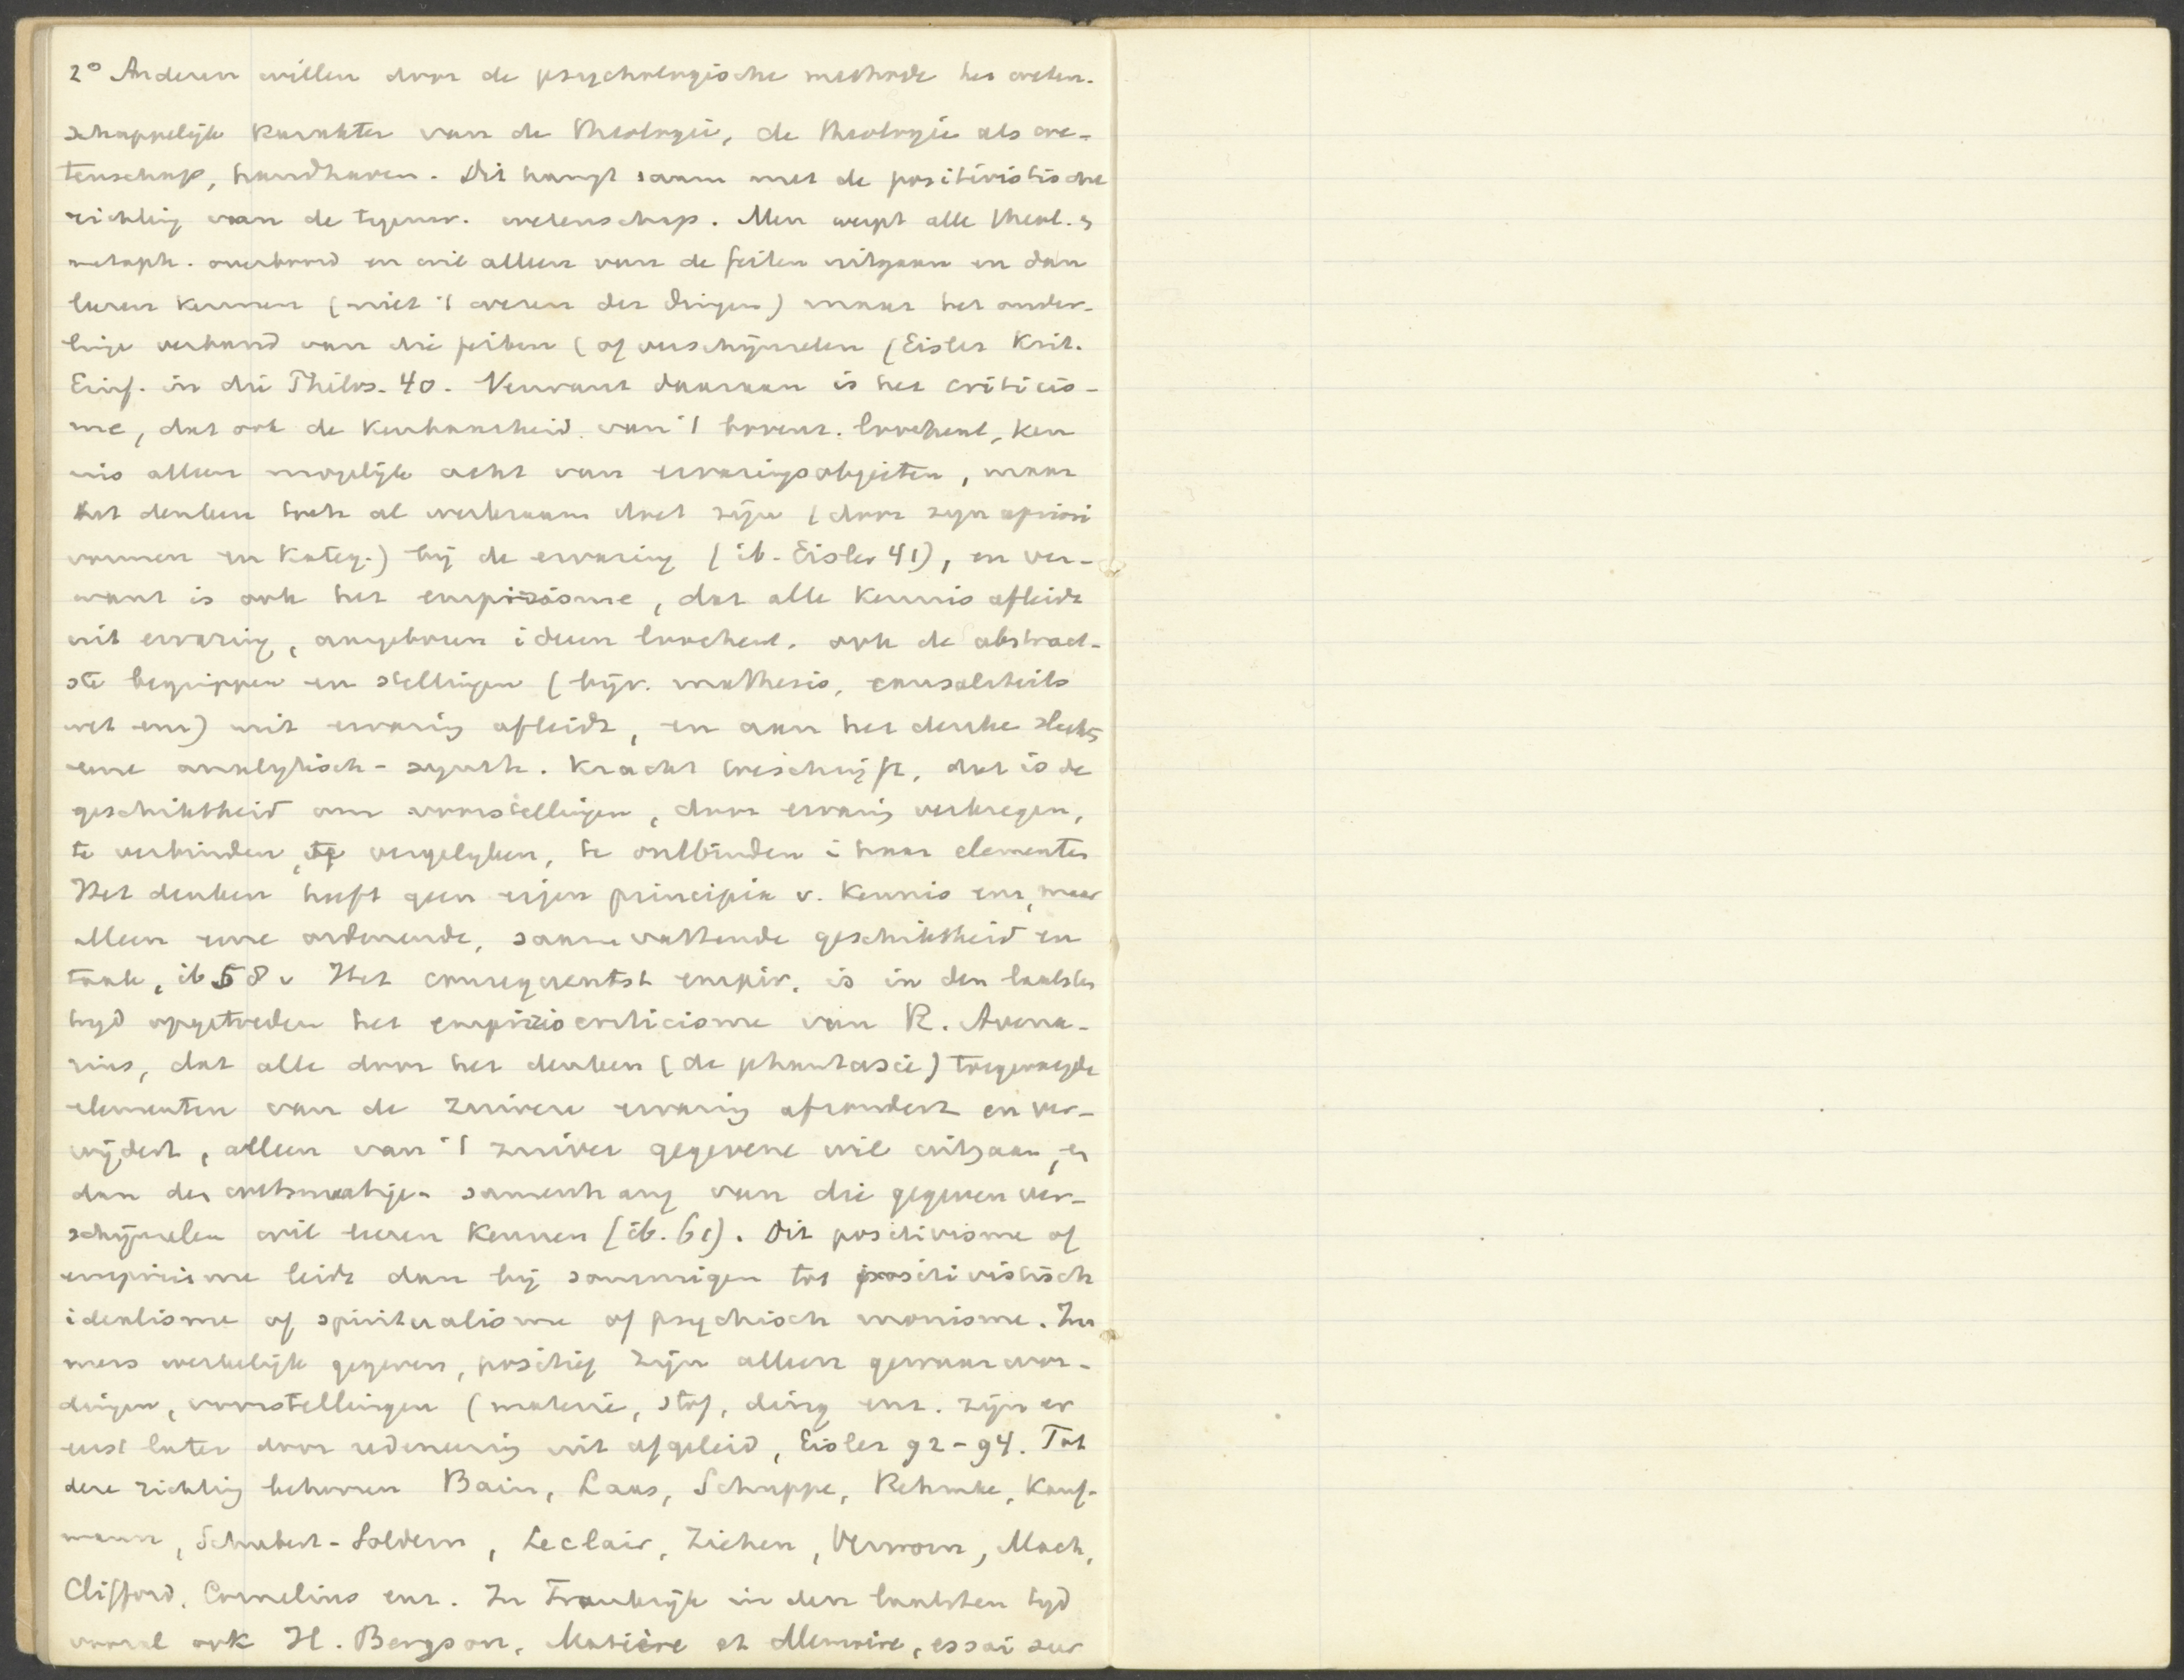 2° Anderen willen door de psychologische methode het weten-
schappelijk karakter van de theologie, de theologie als we-
tenschap, handhaven. Dit hangt saam met de positivistische
richting van de tegenw. wetenschap. Men werpt alle theol. en
metaph. overboord en wil alleen van de feiten uitgaan en dan
leeren kennen (niet 't wezen der dingen) maar het onder-
linge verband van die feiten (of verschijnselen (Eisler Krit.
Einf. in die Philos. 40. Verwant daaraan is het criticis-
me, dat ook de kenbaarheid van 't bovenz. loochent, ken
nis alleen mogelijk acht van ervaringsobjecten, maar
het denken toch al werkzaam doet zijn (door zijn apriori
vormen en kateg.) bij de ervaring (ib. Eisler 41), en ver-
want is ook het empirisme, dat alle kennis afleidt
uit ervaring, aangeboren ideeen loochent, ook de abstract-
ste begrippen en stellingen (bijv. mathesis, causaliteits
wet enz) uit ervaring afleidt, en aan het denke slechts
eene analytisch-synth. kracht toeschrijft, dat is de
geschiktheid om voorstellingen, door ervaring verkregen,
te verbinden, te vergelyken, te ontbinden i haar elementen
Het denken heeft geen eigen principia v. kennis enz, maar
alleen eene ordenende, samenvattende geschiktheid en
taak, ib 58. Het consequentst empir. is in den laatsten
tyd opgetreden het empiriocriticisme van R. Avena-
rius, dat alle door het denken (de phantasie) toegevoegde
elementen van de zuivere ervaring afzondert en ver-
wijdert, alleen van 't zuiver gegevene wil uitgaan, en
dan den wetmatigen samenhang van die gegeven ver-
schijnselen wil leeren kennen (ib. 61). Dit positivisme of
empirisme leidt dan bij sommigen tot positivistisch
idealisme of spiritualisme of psychisch monisme. Im
mers werkelijk gegeven, positief zijn alleen gewaarwor-
dingen, voorstellingen (materie, stof, ding enz. zijn er
eerst later door redeneering uit afgeleid, Eisler 92-94. Tot
deze richting behooren Bain, Laas, Schuppe, Rehmke, Kauf-
mann, Schubert-Soldern, Leclair, Ziehen, Verworn, Mach,
Clifford, Cornelius enz. In Frankrijk in den laatsten tyd
vooral ook H. Bergson, Matière et Memoire, essai sur